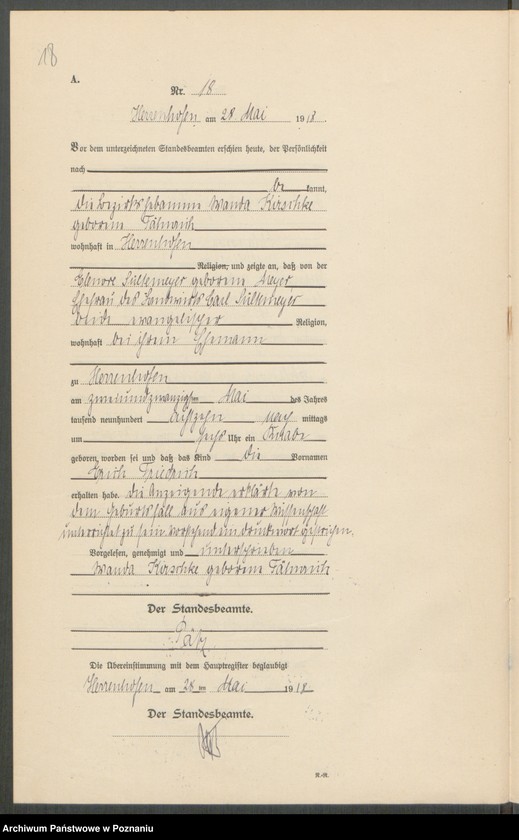 18
A.
Nr. 18
Herrenhofen am 28 Mai 1918.
Vor dem unterzeichneten Standesbeamten erschien heute, der Persönlichkeit
nach
be kannt,
die Bezirkshebamme Wanda Kirschke
geborene
wohnhaft in Herrenhofen
Religion, und zeigte an, daß von der
Eleonore Sültemeyer geborene Meyer
Ehefrau des Landwirts Carl Sültemeyer
beide evangelischer Religion,
wohnhaft bei ihrem Ehemann
zu Herrenhofen
am zweiundzwanzigsten Mai des Jahres
tausend neunhundert achtzehn nach mittags
um sechs Uhr ein Knabe
geboren worden sei und daß das Kind die Vornamen
Erich Friedrich
erhalten habe. Die Anzeigende erklärte von
dem Geburtsfall aus eigener Wissenschaft
unterrichtet zu sein vorstehend ein Druckwort gestrichen.
Vorgelesen, genehmigt und unterschrieben
Wanda Kirschke geborene
Der Standesbeamte.
Die Übereinstimmung mit dem Hauptregister beglaubigt
Herrenhofen am 28 ten Mai 1918
Der Standesbeamte.
R.-R.
Archiwum Państwowe w Poznaniu